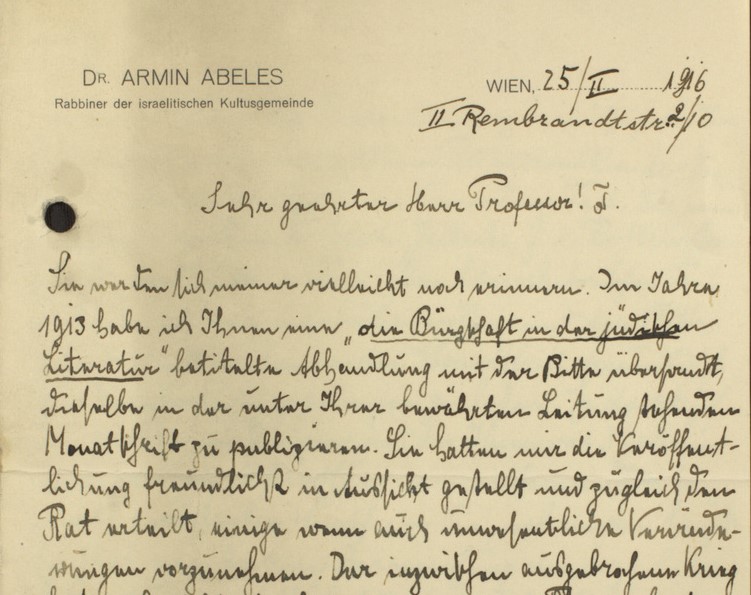 DR. ARMIN ABELES
Rabbiner der israelitischen Kultusgemeinde
WIEN, 25/II 1916
II Rembrandtstr. 2/10
Sehr geehrter Herr Professor!
Sie werden sich meiner vielleicht noch erinnern. Im Jahre
1913 habe ich Ihnen eine „die Bürgschaft in der jüdischen
Literatur“ betitelte Abhandlung mit der Bitte übersandt,
dieselbe in der unter Ihrer bewährten Leitung stehenden
Monatschrift zu publizieren. Sie hatten mir die Veröffent-
lichung freundlichst in Aussicht gestellt und zugleich den
Rat erteilt, einige wenn auch unwesentliche Verände-
rungen vorzunehmen. Der inzwischen ausgebrochene Krieg